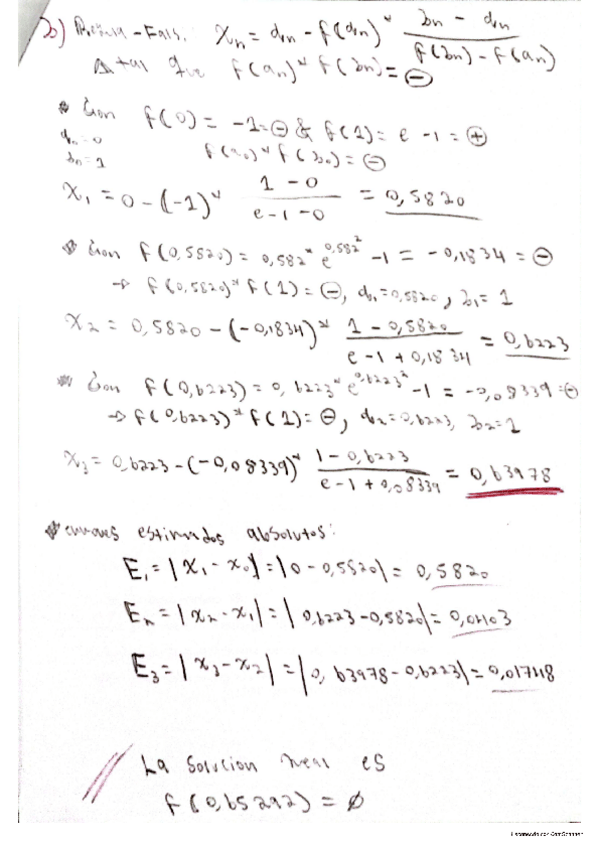 b) Regula-Falsi: Xn = an - f(an) * (bn - an) / (f(bn) - f(an))
tal que f(an) * f(bn) = ⊖
* Con f(0) = -1 = ⊖ & f(1) = e - 1 = ⊕
a0 = 0
b0 = 1
f(a0) * f(b0) = ⊖
X1 = 0 - (-1) * (1 - 0) / (e - 1 - 0) = 0,5820
* Con f(0,5820) = 0,582 * e^0,582² - 1 = -0,1834 = ⊖
→ f(0,5820) * f(1) = ⊖, a1 = 0,5820, b1 = 1
X2 = 0,5820 - (-0,1834) * (1 - 0,5820) / (e - 1 + 0,1834) = 0,6223
* Con f(0,6223) = 0,6223 * e^0,6223² - 1 = -0,08339 = ⊖
→ f(0,6223) * f(1) = ⊖, a2 = 0,6223, b2 = 1
X3 = 0,6223 - (-0,08339) * (1 - 0,6223) / (e - 1 + 0,08339) = 0,63978
* errores estimados absolutos:
E1 = |X1 - X0| = |0 - 0,5820| = 0,5820
En = |Xn - X1| = |0,6223 - 0,5820| = 0,0403
E3 = |X3 - X2| = |0,63978 - 0,6223| = 0,01748
La solucion real es
f(0,65292) = ∅